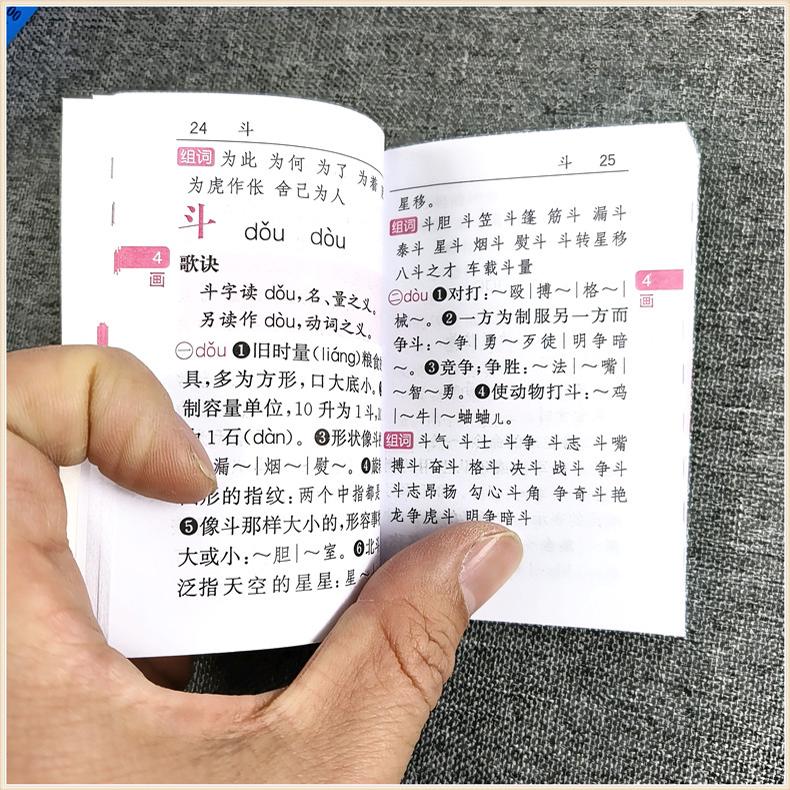 24 斗
组词 为此 为何 为了 为着
为虎作伥 舍己为人
斗 dǒu dòu
4
画
歌诀
斗字读 dǒu,名、量之义。
另读作 dòu,动词之义。
㊀dǒu ❶旧时量(liáng)粮食
具,多为方形,口大底小。
制容量单位,10 升为1斗,
1石(dàn)。❸形状像斗
漏～|烟～|熨～。❹
形的指纹:两个中指都
❺像斗那样大小的,形容事
大或小:～胆|～室。❻北
泛指天空的星星:星～
斗 25
星移。
组词 斗胆 斗笠 斗篷 筋斗 漏斗
泰斗 星斗 烟斗 熨斗 斗转星移
八斗之才 车载斗量
4
画
㊁dòu ❶对打:～殴|搏～|格～|
械～。❷一方为制服另一方而
争斗:～争|勇～歹徒|明争暗
～。❸竞争;争胜:～法|～嘴|
～智～勇。❹使动物打斗:～鸡
|～牛|～蛐蛐儿。
组词 斗气 斗士 斗争 斗志 斗嘴
搏斗 奋斗 格斗 决斗 战斗 争斗
斗志昂扬 勾心斗角 争奇斗艳
龙争虎斗 明争暗斗